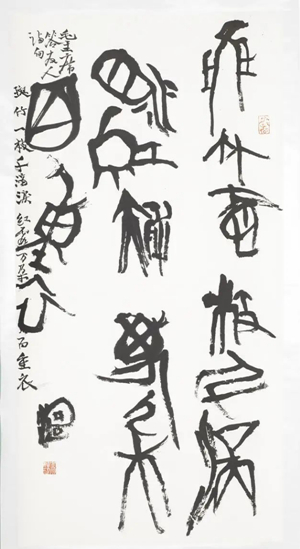 斑竹壹枝千滴
淚紅霞萬朵
百重衣
毛主席
答友人
詩句
斑竹一枝千滴淚 红霞万朵百重衣